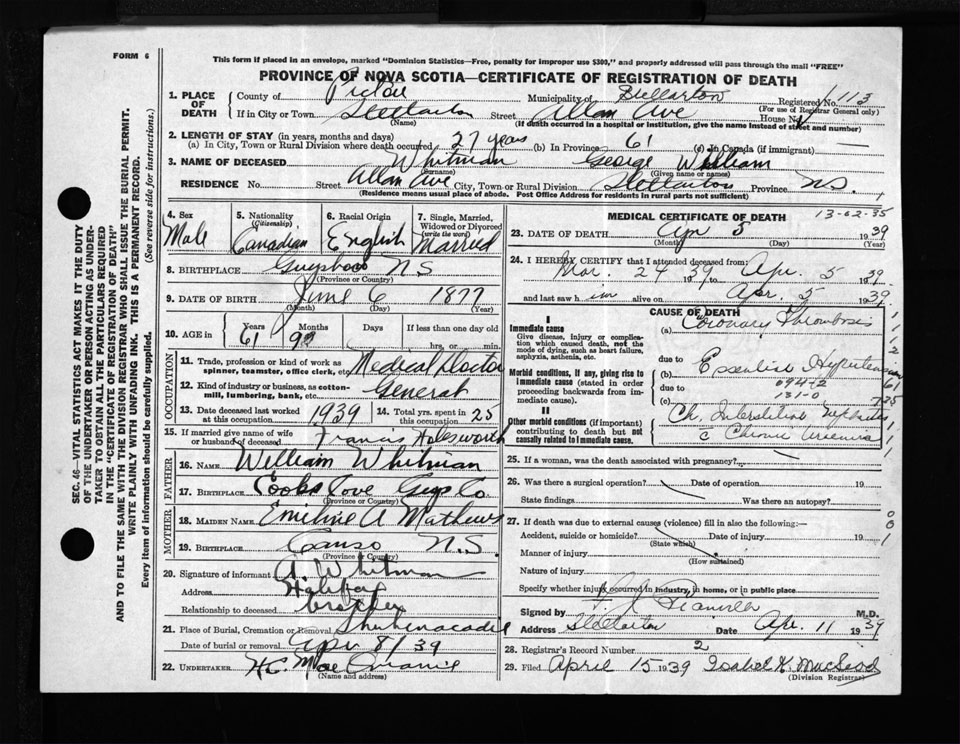 FORM 6
This form if placed in an envelope, marked "Dominion Statistics—Free, penalty for improper use $300," and properly addressed will pass through the mail "FREE"
PROVINCE OF NOVA SCOTIA—CERTIFICATE OF REGISTRATION OF DEATH
1. PLACE OF DEATH
County of Pictou Municipality of Stellarton Registered No. 1113
(For use of Registrar General only)
If in City or Town Stellarton Street Allan Ave House No.
(Name) (If death occurred in a hospital or institution, give the name instead of street and number)
2. LENGTH OF STAY (in years, months and days)
(a) In City, Town or Rural Division where death occurred 27 years (b) In Province 61 (c) In Canada (if immigrant) —
3. NAME OF DECEASED Whitman George William
(Surname) (Given name or names)
RESIDENCE No. Street Allan Ave City, Town or Rural Division Stellarton Province N.S.
(Residence means usual place of abode. Post Office Address for residents in rural parts not sufficient)
4. Sex Male
5. Nationality (Citizenship) Canadian
6. Racial Origin English
7. Single, Married, Widowed or Divorced (write the word) Married
8. BIRTHPLACE Guysboro N S
(Province or Country)
9. DATE OF BIRTH June 6 1877
(Month) (Day) (Year)
10. AGE in Years Months Days If less than one day old
61 9 hrs. or min.
OCCUPATION
11. Trade, profession or kind of work as spinner, teamster, office clerk, etc. Medical Doctor
12. Kind of industry or business, as cotton-mill, lumbering, bank, etc. General
13. Date deceased last worked at this occupation 1939 14. Total yrs. spent in this occupation 25
15. If married give name of wife or husband of deceased Francis Holesworth
FATHER
16. Name William Whitman
17. Birthplace Cooks Cove Guys Co
(Province or Country)
MOTHER
18. Maiden Name Emiline A Mathews
19. Birthplace Canso N.S.
(Province or Country)
20. Signature of informant A. Whitman
Address Halifax
Relationship to deceased brother
21. Place of Burial, Cremation or Removal Shubenacadie
Date of burial or removal Apr 8/39
22. UNDERTAKER H.C.
(Name and address)
MEDICAL CERTIFICATE OF DEATH
13-62-35
23. DATE OF DEATH Apr 5 1939
(Month) (Day) (Year)
24. I HEREBY CERTIFY that I attended deceased from:
Mar. 24 1939, to Apr. 5 1939
and last saw him alive on Apr. 5 1939
CAUSE OF DEATH
I
Immediate cause
Give disease, injury or complication which caused death, not the mode of dying, such as heart failure, asphyxia, asthenia, etc.
(a) Coronary Thrombosis
due to
Morbid conditions, if any, giving rise to immediate cause (stated in order proceeding backwards from immediate cause).
(b) Essential Hypertension
due to 094-2
(c) 131-0
II
Other morbid conditions (if important) contributing to death but not causally related to immediate cause.
Ch. Interstitial Nephritis
c Chronic Uraemia
25. If a woman, was the death associated with pregnancy? —
26. Was there a surgical operation? Date of operation 19
State findings Was there an autopsy?
27. If death was due to external causes (violence) fill in also the following:—
Accident, suicide or homicide? Date of injury 19
(State which)
Manner of injury
(How sustained)
Nature of injury
Specify whether injury occurred in industry, in home, or in public place
Signed by M.D.
Address Stellarton Date Apr. 11 1939
28. Registrar's Record Number 2
29. Filed April 15 1939 Isabel K. MacLeod
(Division Registrar)
SEC. 46—VITAL STATISTICS ACT MAKES IT THE DUTY OF THE UNDERTAKER OR PERSON ACTING AS UNDERTAKER TO OBTAIN ALL THE PARTICULARS REQUIRED IN THE "CERTIFICATE OF REGISTRATION OF DEATH"
AND TO FILE THE SAME WITH THE DIVISION REGISTRAR WHO SHALL ISSUE THE BURIAL PERMIT.
WRITE PLAINLY WITH UNFADING INK. THIS IS A PERMANENT RECORD.
Every item of information should be carefully supplied. (See reverse side for instructions.)